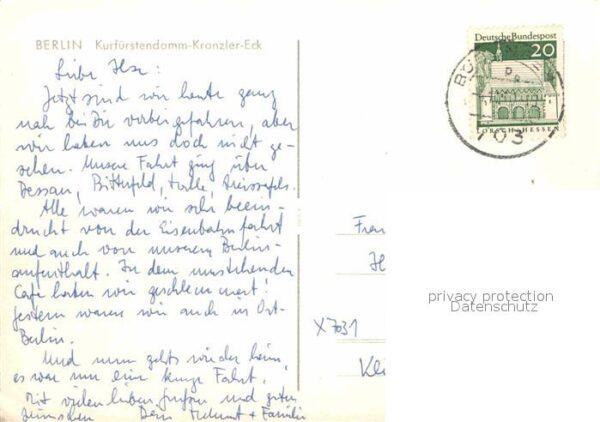 BERLIN Kurfürstendamm-Kranzler-Eck
Liebe Ilse:
Jetzt sind wir heute ganz
nah bei Dir vorbeigefahren, aber
wir haben uns doch nicht ge-
sehen. Unsere Fahrt ging über
Dessau, Bitterfeld, Halle, Weissenfels.
Alle waren wir sehr beein-
druckt von der Eisenbahnfahrt
und auch von unserem Berlin-
aufenthalt. In dem umstehenden
Café haben wir geschlemmert!
Gestern waren wir auch in Ost-
Berlin.
Und nun gehts wieder heim,
es war nur eine kurze Fahrt.
Mit vielen lieben Grüßen und guten
Wünschen Dein Helmut + Familie
Deutsche Bundespost
20
LORSCH/HESSEN
703
Frau
X7031
privacy protection
Datenschutz